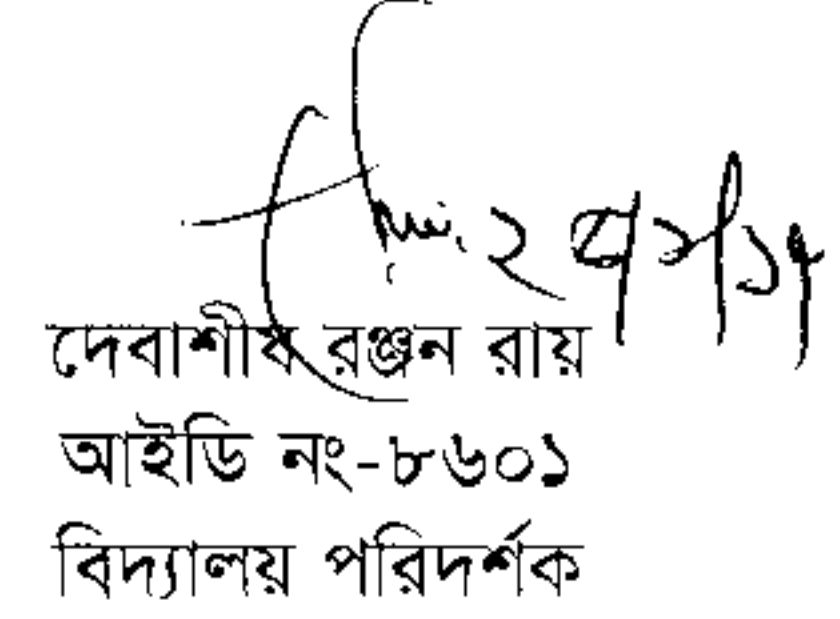 দেবাশীষ রঞ্জন রায়
আইডি নং-৮৬০১
বিদ্যালয় পরিদর্শক